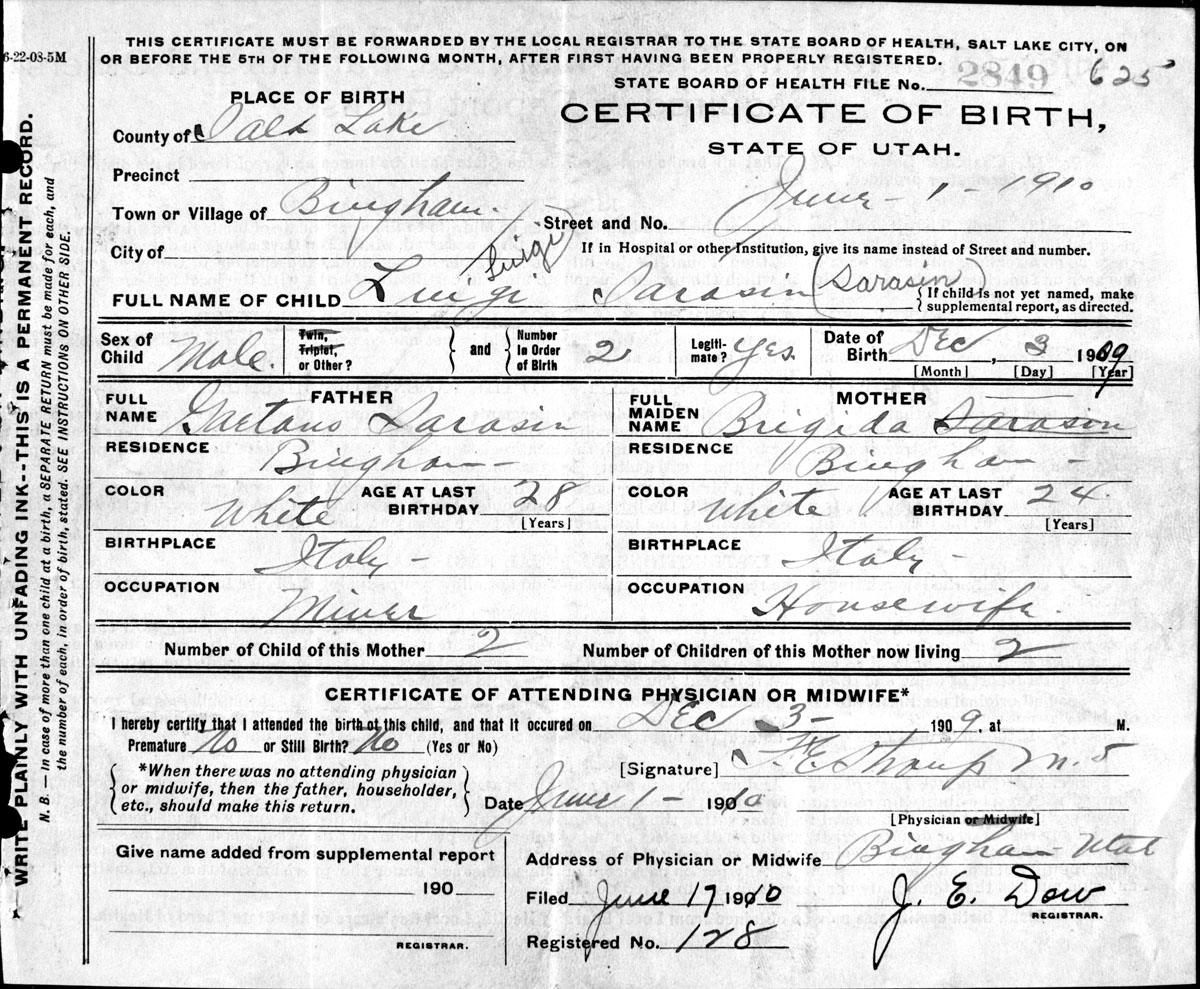 6-22-08-5M
THIS CERTIFICATE MUST BE FORWARDED BY THE LOCAL REGISTRAR TO THE STATE BOARD OF HEALTH, SALT LAKE CITY, ON
OR BEFORE THE 5TH OF THE FOLLOWING MONTH, AFTER FIRST HAVING BEEN PROPERLY REGISTERED.
STATE BOARD OF HEALTH FILE No. 2849 625
PLACE OF BIRTH
CERTIFICATE OF BIRTH,
County of Salt Lake
STATE OF UTAH.
Precinct
June 1 - 1910
Town or Village of Bingham.
Street and No.
City of
If in Hospital or other Institution, give its name instead of Street and number.
(Luigi)
FULL NAME OF CHILD Luigi Sarasin (Sarasin)
{If child is not yet named, make
supplemental report, as directed.
Sex of Child Male.
Twin, Triplet, or Other?
and
Number in Order of Birth 2
Legiti-mate? Yes.
Date of Birth Dec, 3 1909
[Month] [Day] [Year]
FATHER
FULL NAME Gaetano Sarasin
RESIDENCE Bingham -
COLOR White
AGE AT LAST BIRTHDAY 28
[Years]
BIRTHPLACE Italy -
OCCUPATION Miner
MOTHER
FULL MAIDEN NAME Brigida Sarasin
RESIDENCE Bingham -
COLOR White
AGE AT LAST BIRTHDAY 24.
[Years]
BIRTHPLACE Italy -
OCCUPATION Housewife.
Number of Child of this Mother 2
Number of Children of this Mother now living 2
CERTIFICATE OF ATTENDING PHYSICIAN OR MIDWIFE*
I hereby certify that I attended the birth of this child, and that it occured on Dec 3 - 1909, at M.
Premature No or Still Birth? No (Yes or No)
{*When there was no attending physician
or midwife, then the father, householder,
etc., should make this return.}
[Signature] F. E. Straup M.D
Date June 1 - 1910
[Physician or Midwife]
Give name added from supplemental report
190
REGISTRAR.
Address of Physician or Midwife Bingham Utah
Filed June 17 1910 J. E. Dow
REGISTRAR.
Registered No. 128
WRITE PLAINLY WITH UNFADING INK--THIS IS A PERMANENT RECORD.
N. B. — In case of more than one child at a birth, a SEPARATE RETURN must be made for each, and
the number of each, in order of birth, stated. SEE INSTRUCTIONS ON OTHER SIDE.